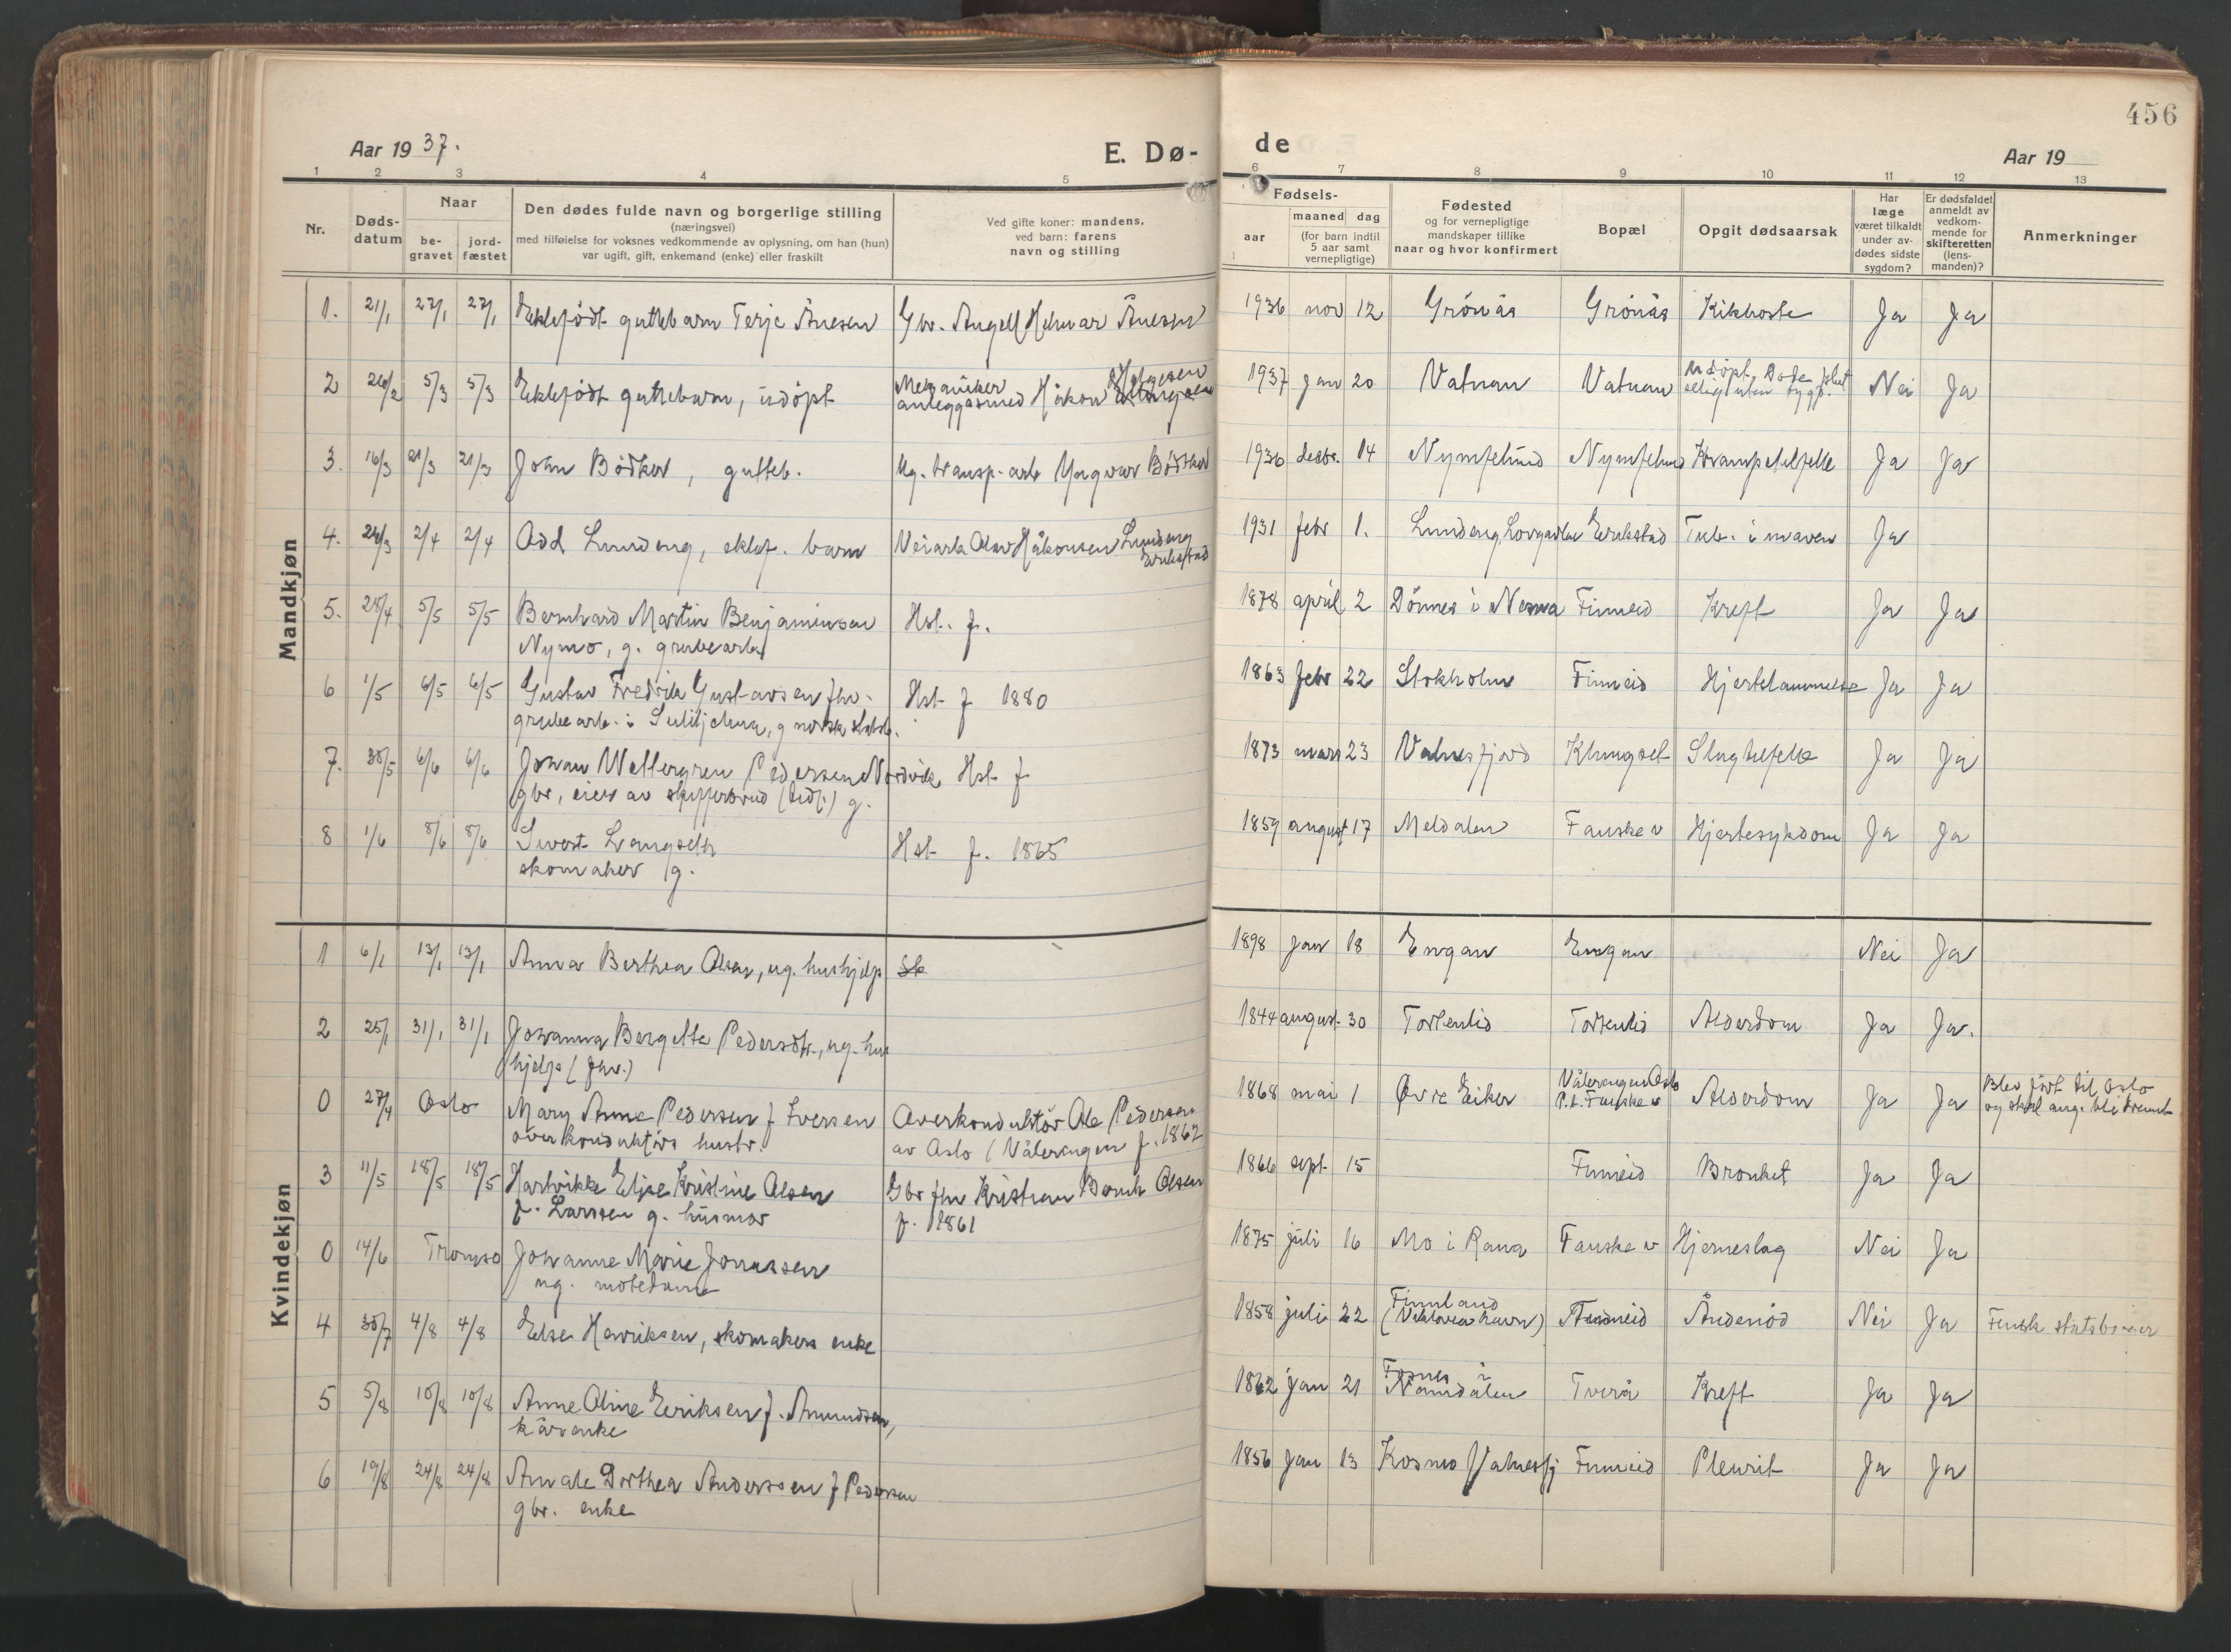 456
Aar 1937.
E. Dø-
de
Aar 19
1 2 3 4 5
6 7 8 9 10 11 12 13
Nr.
Døds-
datum
Naar
be-
gravet
jord-
fæstet
Den dødes fulde navn og borgerlige stilling
(næringsvei)
med tilføielse for voksnes vedkommende av oplysning, om han (hun)
var ugift, gift, enkemand (enke) eller fraskilt
Ved gifte koner: mandens,
ved barn: farens
navn og stilling
Fødsels-
aar
maaned dag
(for barn indtil
5 aar samt
vernepligtige)
Fødested
og for vernepligtige
mandskaper tillike
naar og hvor konfirmert
Bopæl
Opgit dødsaarsak
Har
læge
været tilkaldt
under av-
dødes sidste
sygdom?
Er dødsfaldet
anmeldt av
vedkom-
mende for
skifteretten
(lens-
manden)?
Anmerkninger
Mandkjøn
1. 21/1 27/1 27/1 Ektefödt guttebarn Terje Ånesen Gbr. Angell Helmar Ånesen 1936 nov 12 Grönås Grönås Kikhoste Ja Ja
2 26/2 5/3 5/3 Ektefödt guttebarn, udöpt Mekaniker Helgesen
anleggssmed Håkon 1937 jan 20 Vatnan Vatnan Udöpt. Döde
uten Nei Ja
3. 16/3 21/3 21/3 John Bödker, gutteb. Ug. transp.arb Yngvar Bödker 1936 desbr. 14 Nymfelund Nymfelund Krampetilfelle Ja Ja
4. 24/3 2/4 2/4 Odd Lundeng, ektef. barn Veiarb Olav Håkonsen Lundeng
Erikstad 1931 febr 1. Lundeng Erikstad Tub. i maven Ja
5. 28/4 5/5 5/5 Bernhard Martin Benjaminsen Hst. f. 1878 april 2 Dönnes i Nesna Finneid Kreft Ja Ja
Nymo, g. grubearb
6 1/5 6/5 6/5 Gustav Fredrik Gustavsen fhv. Hst f 1880 1863 febr 22 Stokholm Finneid Hjertelammelse Ja Ja
grubearb. i Sulitjelma, g norsk statsb.
7. 30/5 6/6 6/6 Johan Wellergren Pedersen Nordvik Hst f 1873 mars 23 Valnesfjord Klungset Slagtilfelle Ja Ja
gbr, eier av skifferbrud g.
8 1/6 8/6 8/6 Sivert Langseth Hst f. 1865 1859 august 17 Meldalen Fauske v Hjertesykdom Ja Ja
skomaker g.
Kvindekjøn
1 6/1 13/1 13/1 Anna Berthea Olsen, ug. hushjelp 1898 jan 18 Engan Engan Nei Ja
2 25/1 31/1 31/1 Johanna Bergette Pedersdtr., ug. hus 1844 august 30 Tortenlid Tortenlid Alderdom Ja Ja.
hjelp (fhv.)
0 27/4 Oslo Mary Anne Pedersen f Iversen Overkonduktör Ole Pedersen 1868 mai 1 Øvre Eiker Vålerengen Oslo
P.t. Fauske v Alderdom Ja Ja Blev fört til Oslo
og skal ang. bli kremert
overkonduktörs hustr. av Oslo (Vålerengen f. 1862
3 11/5 18/5 18/5 Hartvikke Elise Kristine Olsen Gbr fhv Kristian Bernh Olsen 1866 sept 15 Finneid Bronkit Ja Ja
f. Larssen g. husmor f. 1861
0 14/6 Tromsö Johanne Marie Jonassen 1875 juli 16 Mo i Rana Fauske v Hjerneslag Nei Ja
ug. motedame
4 30/7 4/8 4/8 Else Henriksen, skomakers enke 1858 juli 22 Finnland
Finneid Åndenöd Nei Ja Finsk statsborger
5 5/8 10/8 10/8 Anne Oline Eriksen f. Amundsen, 1862 jan 21 Fosnes i
Namdalen Tverå Kreft Ja Ja
kårenke
6 19/8 24/8 24/8 Anna Dorthea Anderssen f Pedersen 1856 jan 13 Kosmo Valnesfj Finneid Pleurit Ja Ja
gbr. enke